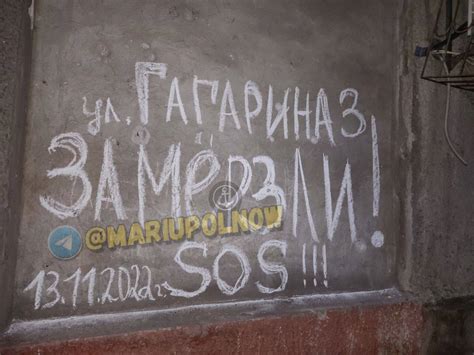 ул. ГАГАРИНА 3
ЗАМЁРЗЛИ!
@MARIUPOLNOW
13.11.2022г. SOS!!!